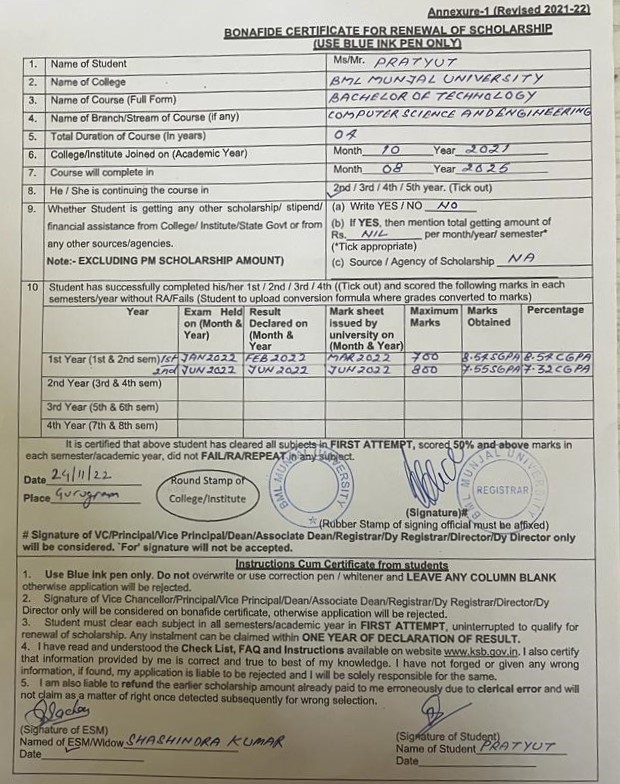 Annexure-1 (Revised 2021-22)
BONAFIDE CERTIFICATE FOR RENEWAL OF SCHOLARSHIP
(USE BLUE INK PEN ONLY)
1. Name of Student Ms/Mr. PRATYUT
2. Name of College BML MUNJAL UNIVERSITY
3. Name of Course (Full Form) BACHELOR OF TECHNOLOGY
4. Name of Branch/Stream of Course (if any) COMPUTER SCIENCE AND ENGINEERING
5. Total Duration of Course (in years) 04
6. College/Institute Joined on (Academic Year) Month 10 Year 2021
7. Course will complete in Month 08 Year 2025
8. He / She is continuing the course in 2nd / 3rd / 4th / 5th year. (Tick out)
9. Whether Student is getting any other scholarship/ stipend/ financial assistance from College/ Institute/State Govt or from any other sources/agencies.
Note:- EXCLUDING PM SCHOLARSHIP AMOUNT)
(a) Write YES / NO NO
(b) If YES, then mention total getting amount of
Rs. NIL per month/year/ semester*
(*Tick appropriate)
(c) Source / Agency of Scholarship NA
10 Student has successfully completed his/her 1st / 2nd / 3rd / 4th ((Tick out) and scored the following marks in each
semesters/year without RA/Fails (Student to upload conversion formula where grades converted to marks)
Year Exam Held on (Month & Year) Result Declared on (Month & Year Mark sheet issued by university on (Month & Year) Maximum Marks Marks Obtained Percentage
1st Year (1st & 2nd sem) 1st JAN 2022 FEB 2022 MAR 2022 700 8.54 SGPA 8.54 CGPA
2nd JUN 2022 JUN 2022 JUN 2022 800 7.55 SGPA 7.32 CGPA
2nd Year (3rd & 4th sem)
3rd Year (5th & 6th sem)
4th Year (7th & 8th sem)
It is certified that above student has cleared all subjects in FIRST ATTEMPT, scored 50% and above marks in
each semester/academic year, did not FAIL/RA/REPEAT in any subject.
Date 24/11/22
Place Gurugram
Round Stamp of
College/Institute
BML MUNJAL UNIVERSITY
BML MUNJAL UNIVERSITY
REGISTRAR
(Signature)#
(Rubber Stamp of signing official must be affixed)
# Signature of VC/Principal/Vice Principal/Dean/Associate Dean/Registrar/Dy Registrar/Director/Dy Director only
will be considered. 'For' signature will not be accepted.
Instructions Cum Certificate from students
1. Use Blue ink pen only. Do not overwrite or use correction pen / whitener and LEAVE ANY COLUMN BLANK
otherwise application will be rejected.
2. Signature of Vice Chancellor/Principal/Vice Principal/Dean/Associate Dean/Registrar/Dy Registrar/Director/Dy
Director only will be considered on bonafide certificate, otherwise application will be rejected.
3. Student must clear each subject in all semesters/academic year in FIRST ATTEMPT, uninterrupted to qualify for
renewal of scholarship. Any instalment can be claimed within ONE YEAR OF DECLARATION OF RESULT.
4. I have read and understood the Check List, FAQ and Instructions available on website www.ksb.gov.in. I also certify
that information provided by me is correct and true to best of my knowledge. I have not forged or given any wrong
information, if found, my application is liable to be rejected and I will be solely responsible for the same.
5. I am also liable to refund the earlier scholarship amount already paid to me erroneously due to clerical error and will
not claim as a matter of right once detected subsequently for wrong selection.
(Signature of ESM)
Named of ESM/Widow SHASHINDRA KUMAR
Date
(Signature of Student)
Name of Student PRATYUT
Date